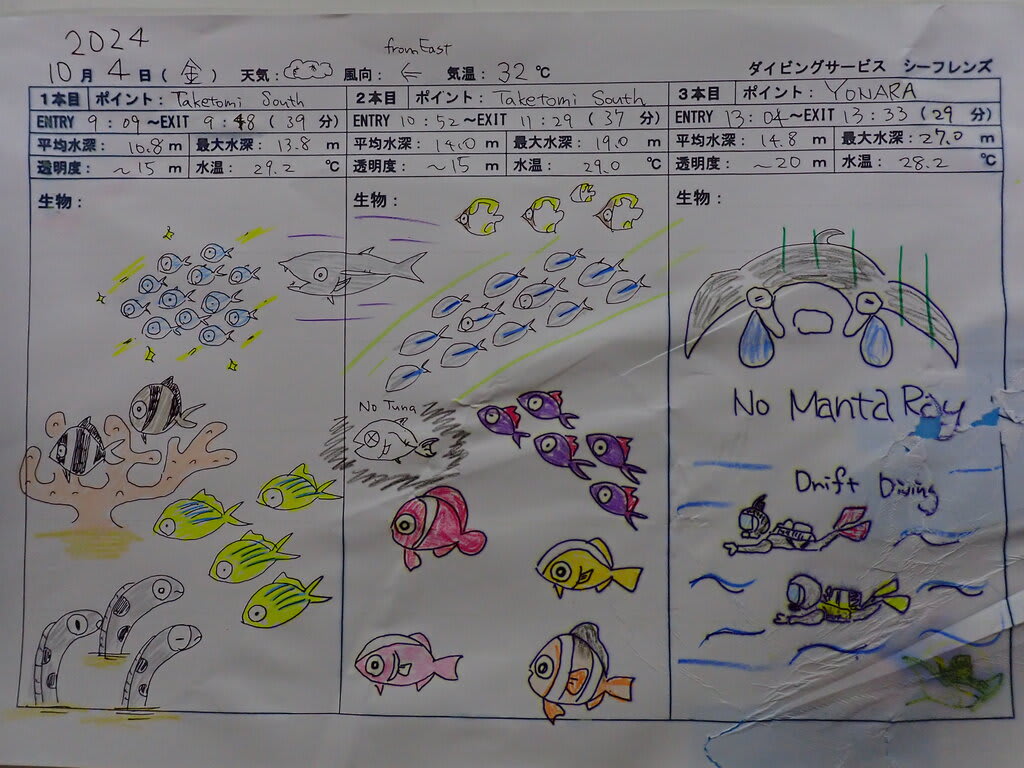 2024
from East
10月 4日(金) 天気: 風向: ← 気温: 32℃ ダイビングサービス シーフレンズ
1本目 ポイント: Taketomi South
ENTRY 9:09～EXIT 9:48 (39分)
平均水深: 10.8 m 最大水深: 13.8 m
透明度: ～15 m 水温: 29.2 ℃
生物:
2本目 ポイント: Taketomi South
ENTRY 10:52～EXIT 11:29 (37分)
平均水深: 14.0 m 最大水深: 19.0 m
透明度: ～15 m 水温: 29.0 ℃
生物:
No Tuna
3本目 ポイント: YONARA
ENTRY 13:04～EXIT 13:33 (29分)
平均水深: 14.8 m 最大水深: 27.0 m
透明度: ～20 m 水温: 28.2 ℃
生物:
No Manta Ray
Drift Diving